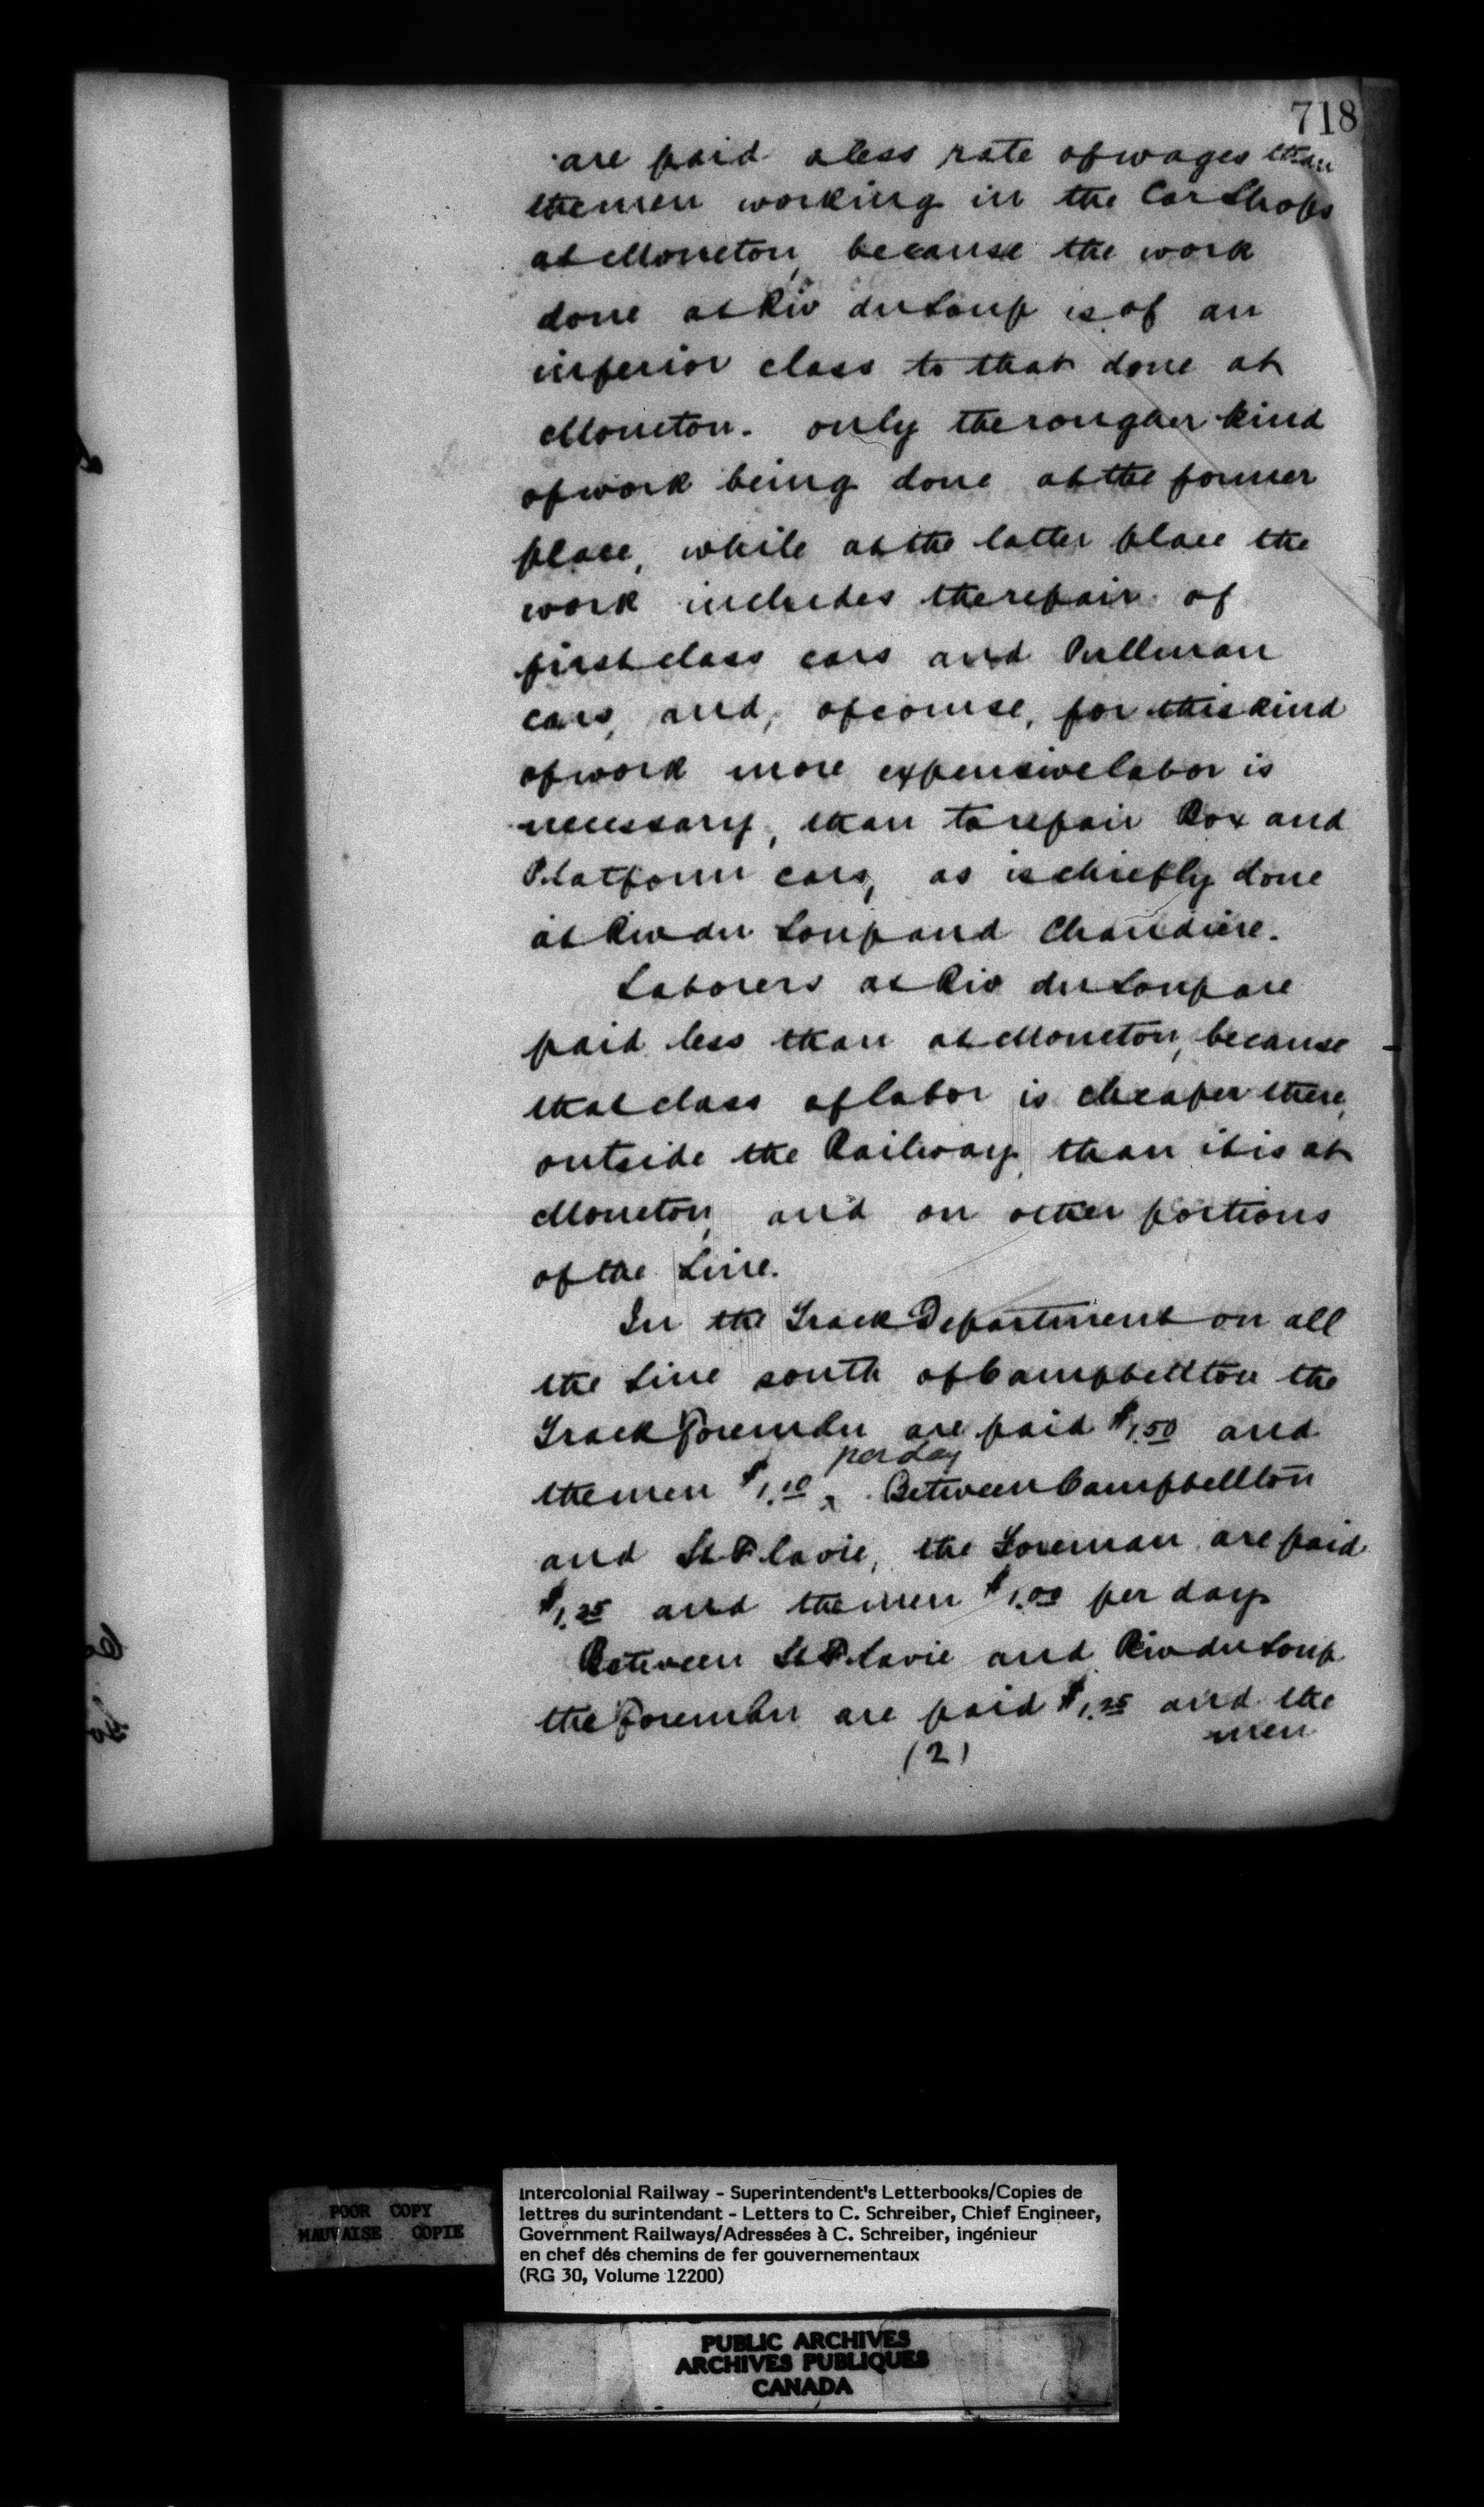 718
are paid a less rate of wages than
the men working in the Car Shops
at Moncton, because the work
done at Riv du Loup is of an
inferior class to that done at
Moncton. only the rougher kind
of work being done at the former
place, while at the latter place the
work includes the repair of
first class cars and Pullman
cars, and, of course, for this kind
of work more expensive labor is
necessary, than to repair Box and
Platform cars, as is chiefly done
at Riv du Loup and Chaudiere.
Laborers at Riv du Loup are
paid less than at Moncton, because
that class of labor is cheaper there,
outside the Railway, than it is at
Moncton, and on other portions
of the Line.
In the Track Department on all
the Line south of Campbellton the
Track Foremen are paid $1.50 and
per day
the men $1.10 ^. Between Campbellton
and St Flavie, the Foreman are paid
$1.25 and the men $1.00 per day
Between St Flavie and Riv du Loup
the Foremen are paid $1.25 and the
men
(2)
POOR COPY
MAUVAISE COPIE
Intercolonial Railway - Superintendent's Letterbooks/Copies de
lettres du surintendant - Letters to C. Schreiber, Chief Engineer,
Government Railways/Adressées à C. Schreiber, ingénieur
en chef dés chemins de fer gouvernementaux
(RG 30, Volume 12200)
PUBLIC ARCHIVES
ARCHIVES PUBLIQUES
CANADA